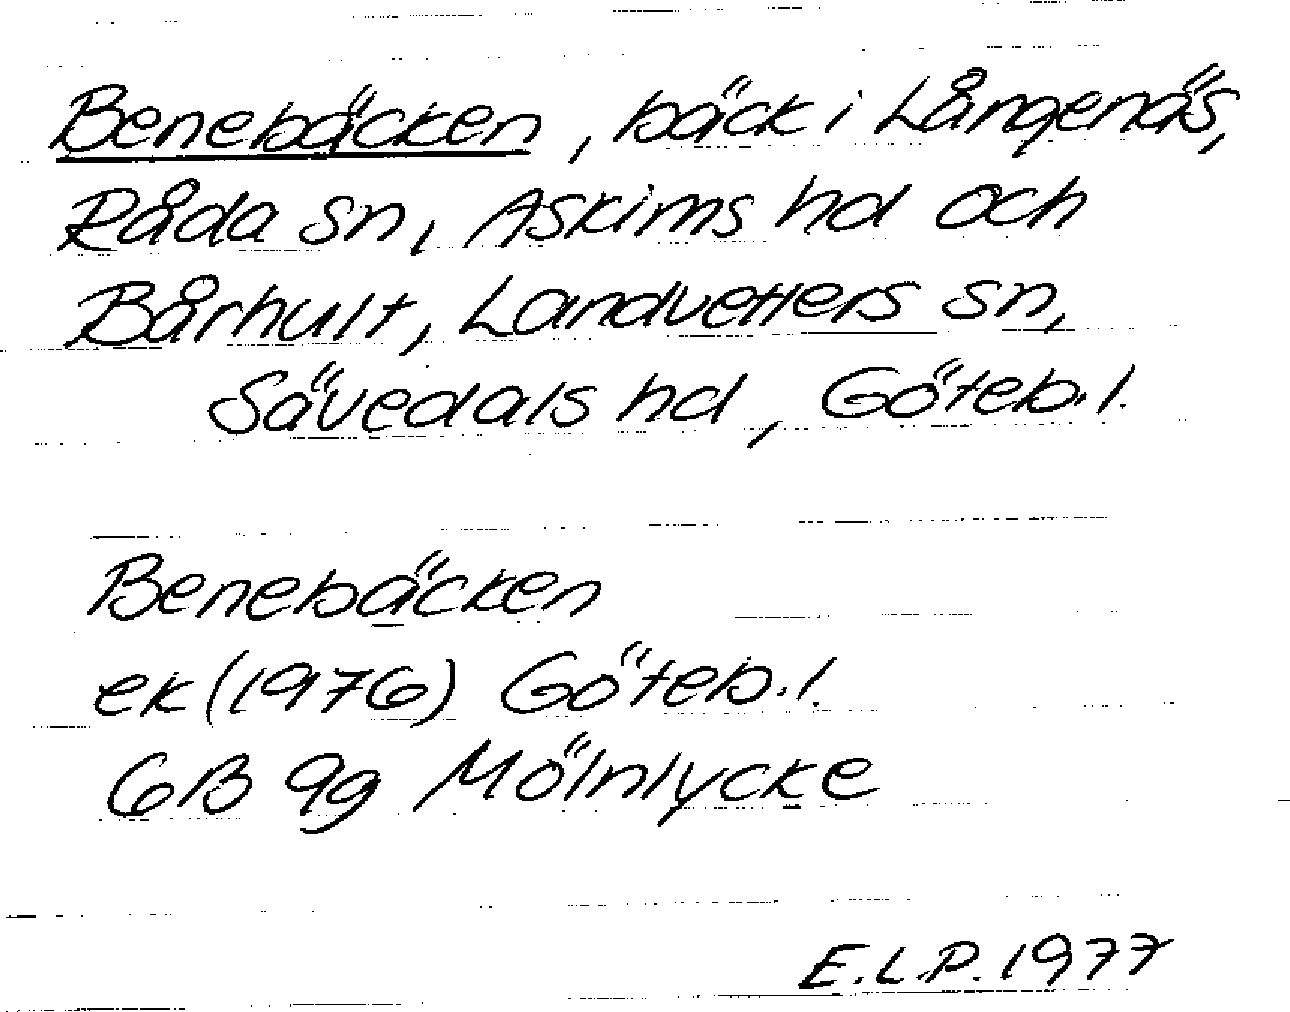 Benebäcken, bäck i Långenäs,
Råda sn, Askims hd och
Bårhult, Landvetters sn,
Sävedals hd, Göteb.l.
Benebäcken
ek (1976) Göteb.l.
6B 9g Mölnlycke
E.L.P. 1977